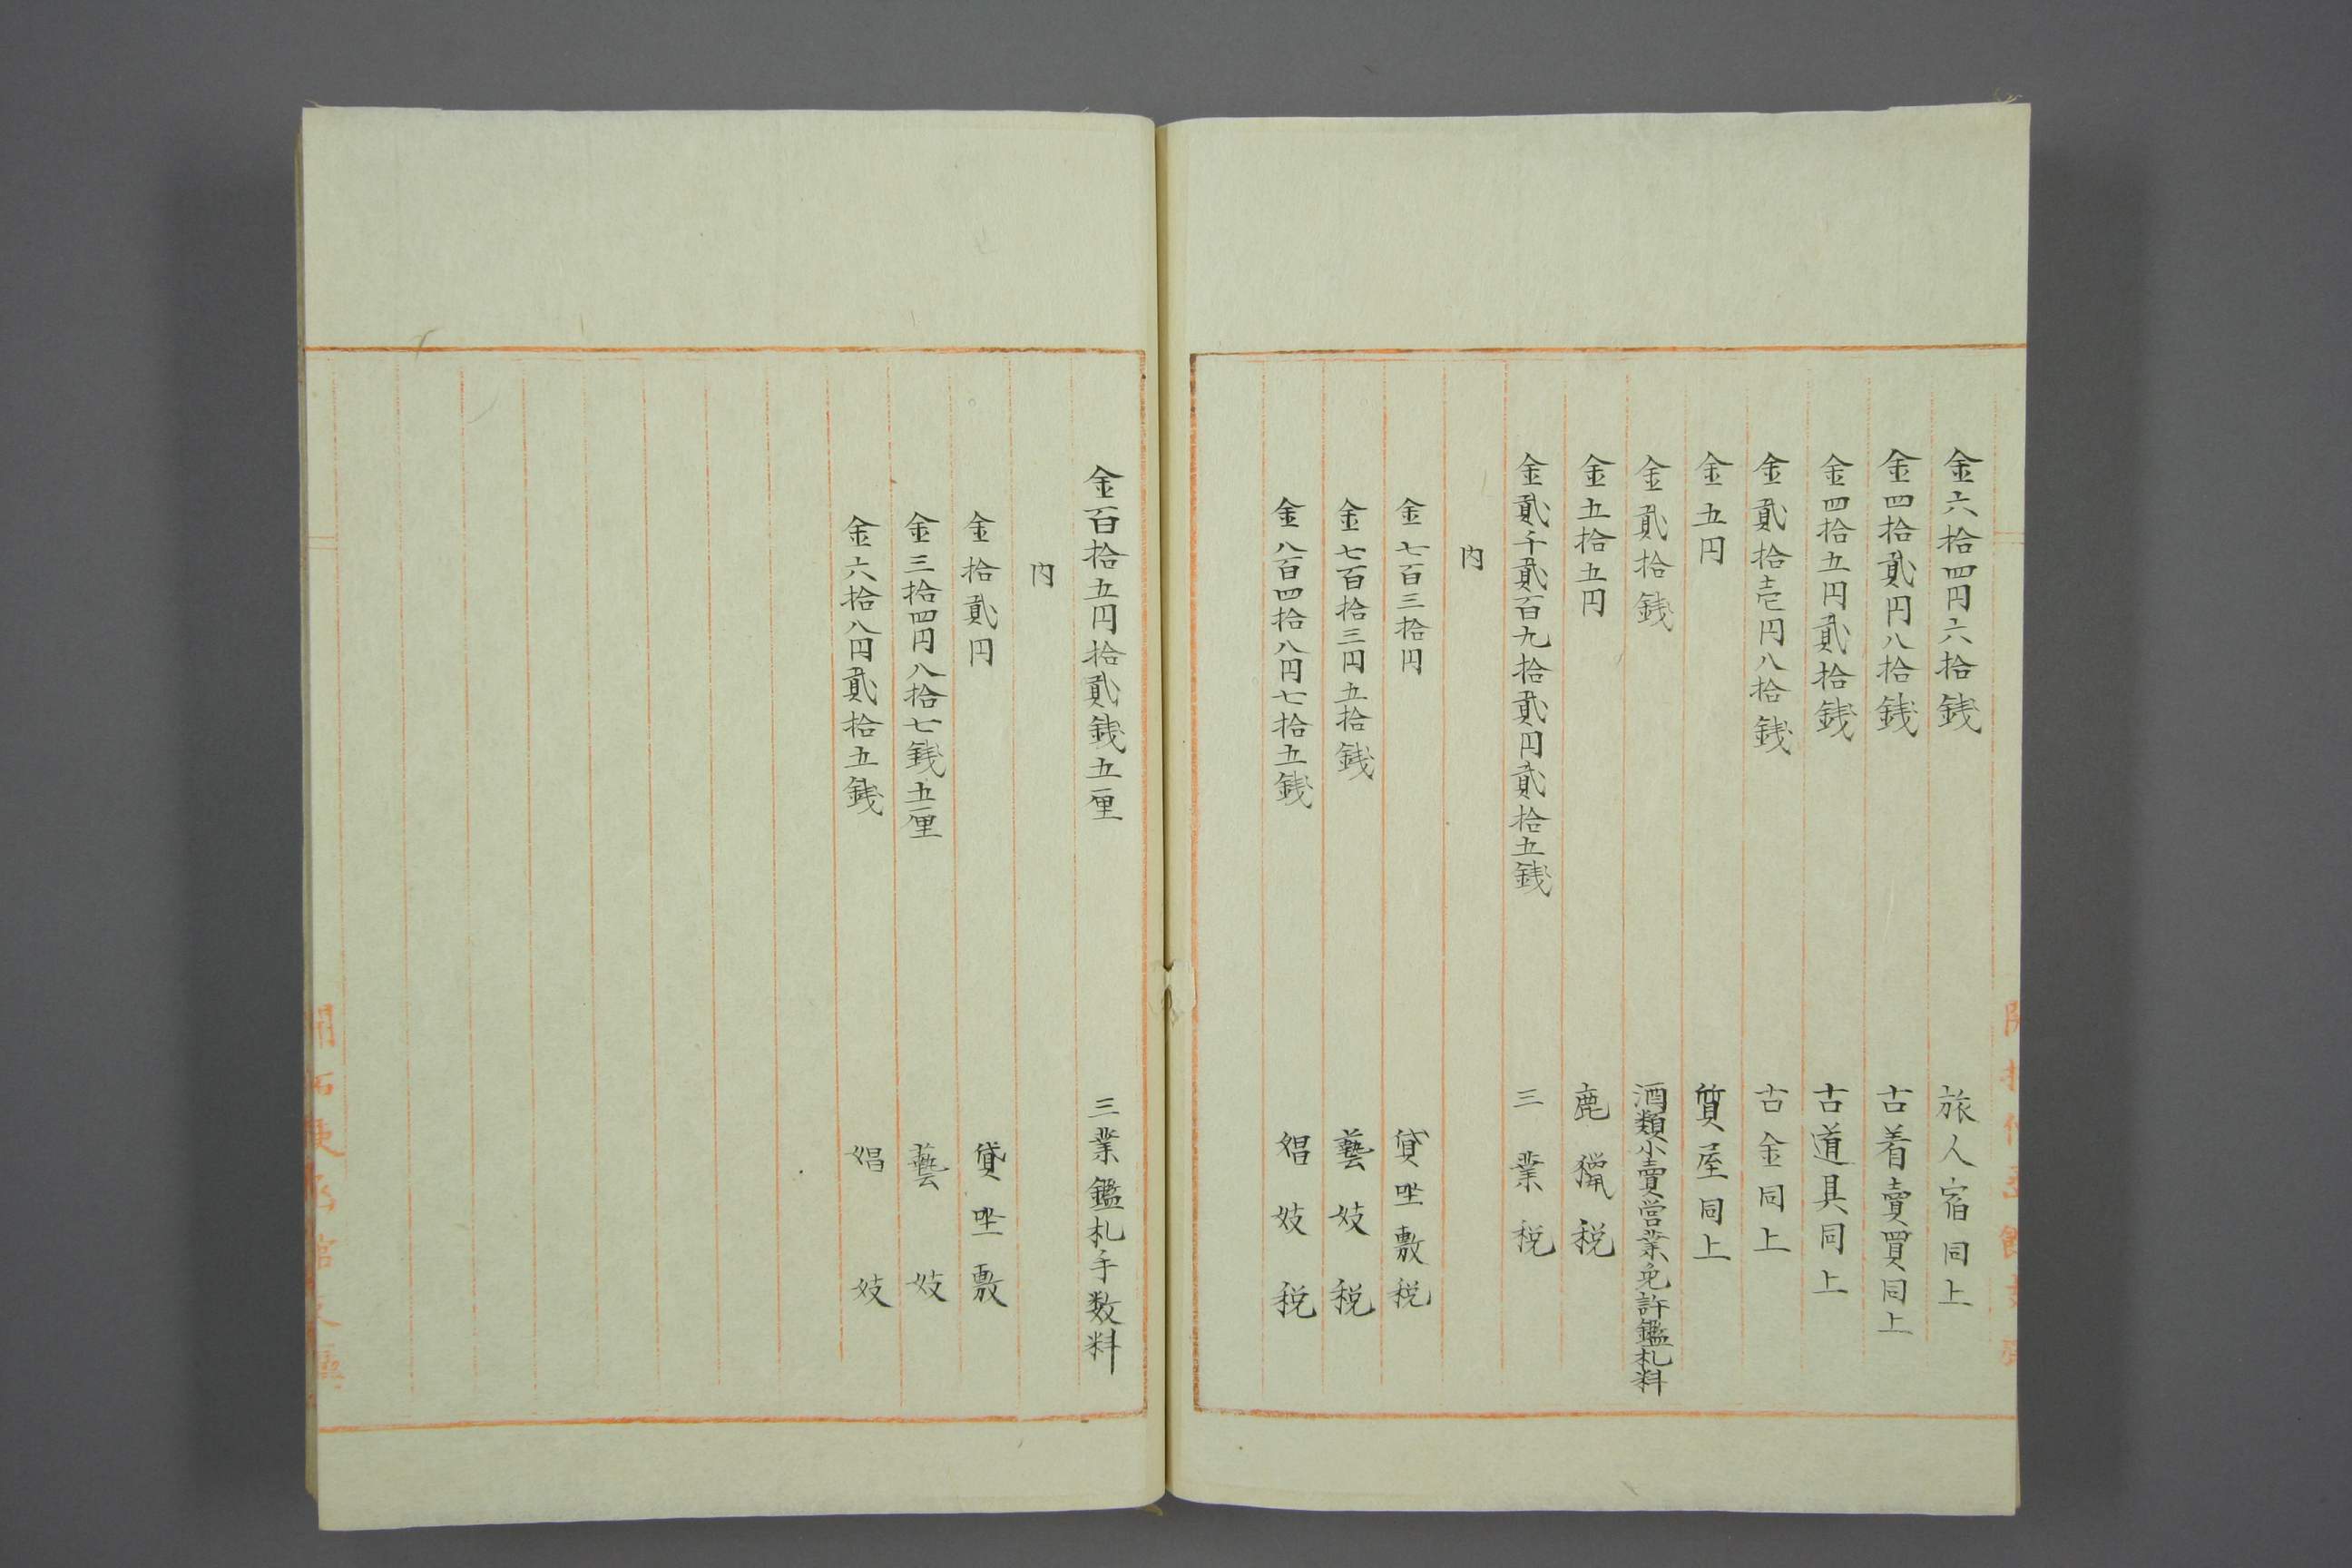 金六拾四円六拾銭 旅人宿同上
金四拾貳円八拾銭 古着賣買同上
金四拾五円貳拾銭 古道具同上
金貳拾壱円八拾銭 古金同上
金五円 質屋同上
金貳拾銭 酒類小賣営業免許鑑札料
金五拾五円 鹿猟税
金貳千貳百九拾貳円貳拾五銭 三業税
内
金七百三拾円 貸坐敷税
金七百拾三円五拾銭 藝妓税
金八百四拾八円七拾五銭 娼妓税
金百拾五円拾貳銭五厘 三業鑑札手数料
内
金拾貳円 貸坐敷
金三拾四円八拾七銭五厘 藝妓
金六拾八円貳拾五銭 娼妓